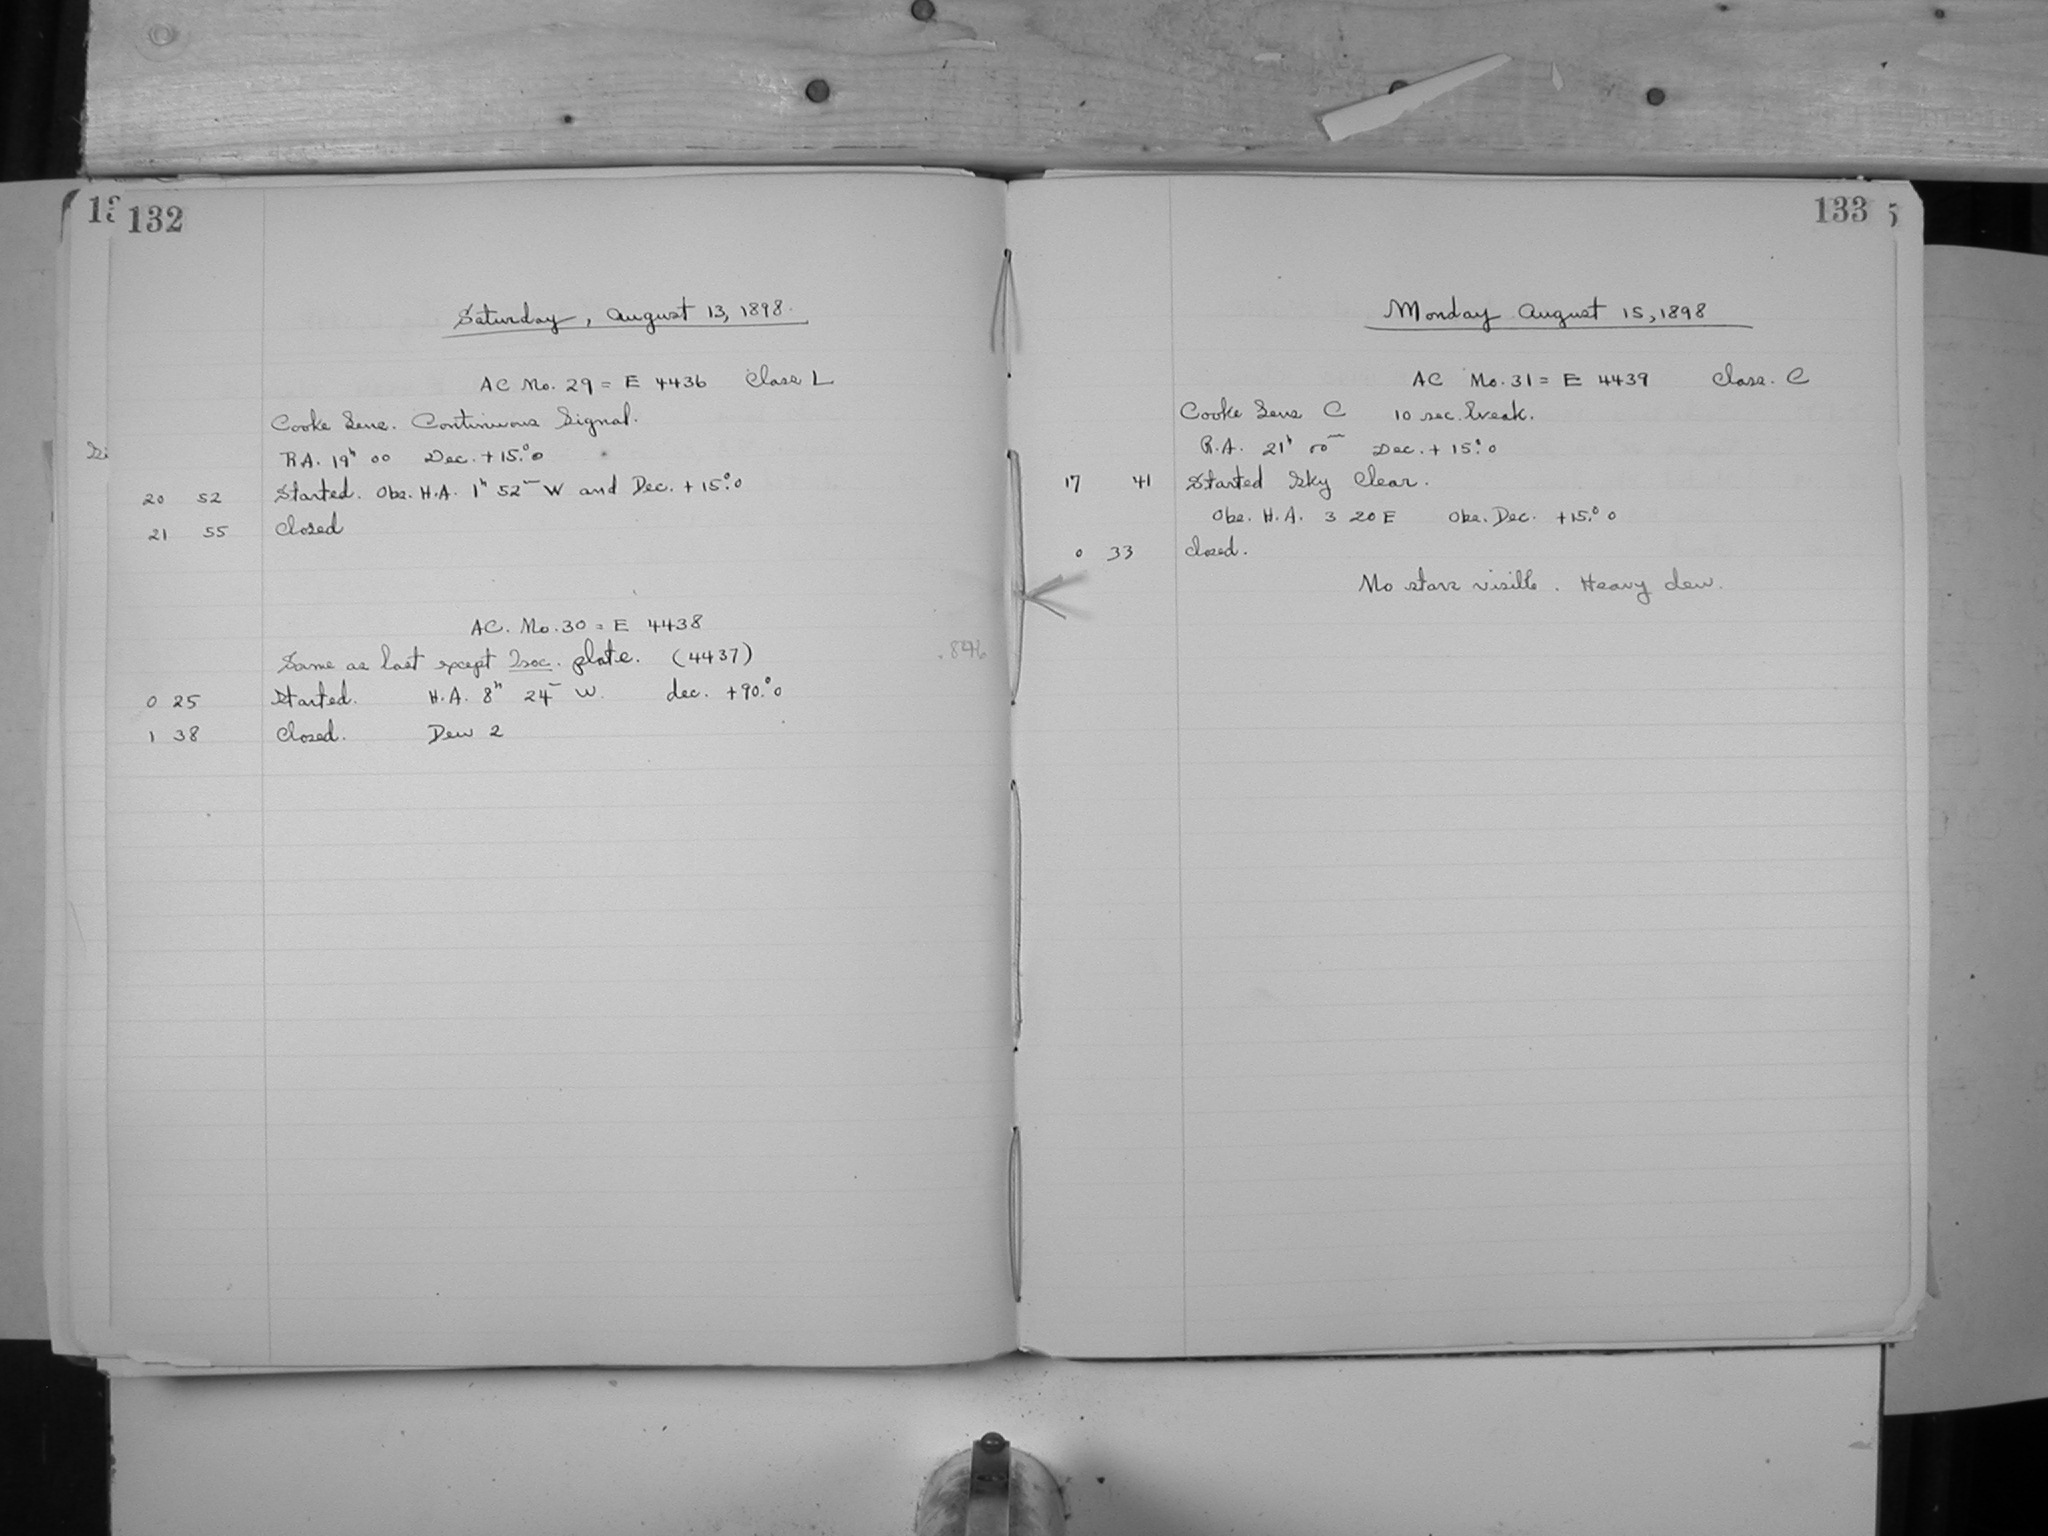 132
Saturday, August 13, 1898.
AC No. 29 = E 4436 Class L
Cooke Lens. Continuous Signal.
R.A. 19h 00 Dec. +15.°0
20 52 Started. Obs. H.A. 1h 52m W and Dec. +15.°0
21 55 Closed
AC. No. 30 = E 4438
Same as last except Isoc. plate. (4437)
0 25 Started. H.A. 8h 24m W. dec. +90.°0
1 38 Closed. Dew 2
133
Monday August 15, 1898
AC No. 31 = E 4439 Class. C
Cooke Lens C 10 sec. break.
R.A. 21h 00m Dec. +15.°0
17 41 Started Sky Clear.
Obs. H.A. 3 20 E Obs. Dec. +15.°0
0 33 Closed.
No stars visible. Heavy dew.